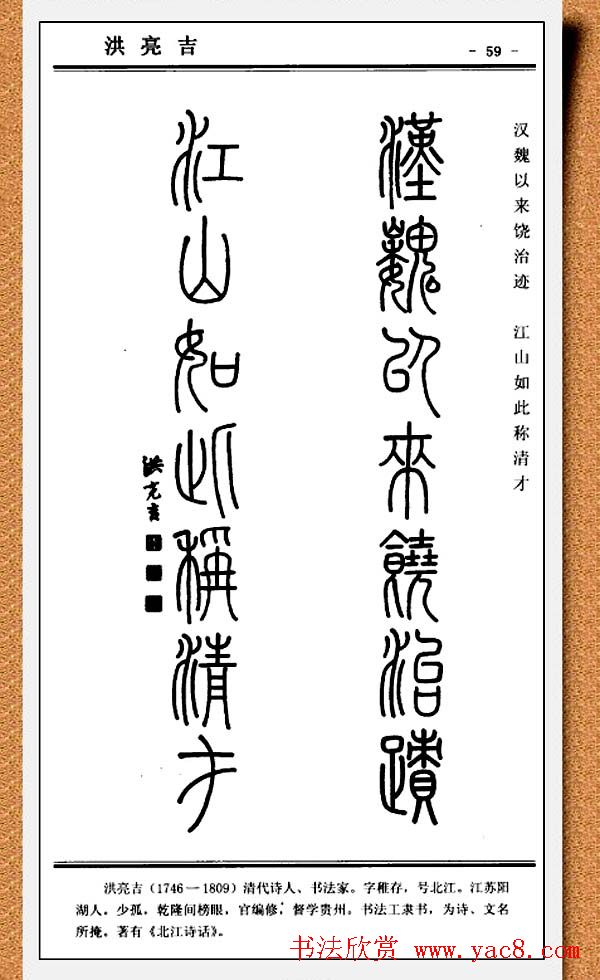 洪亮吉
- 59 -
汉魏以来饶治迹 江山如此称清才
漢魏以來饒治蹟
江山如此稱清才
洪亮吉
洪亮吉（1746—1809）清代诗人、书法家。字稚存，号北江。江苏阳
湖人。少孤，乾隆间榜眼，官编修，督学贵州。书法工隶书，为诗、文名
所掩。著有《北江诗话》。
书法欣赏 www.yac8.com